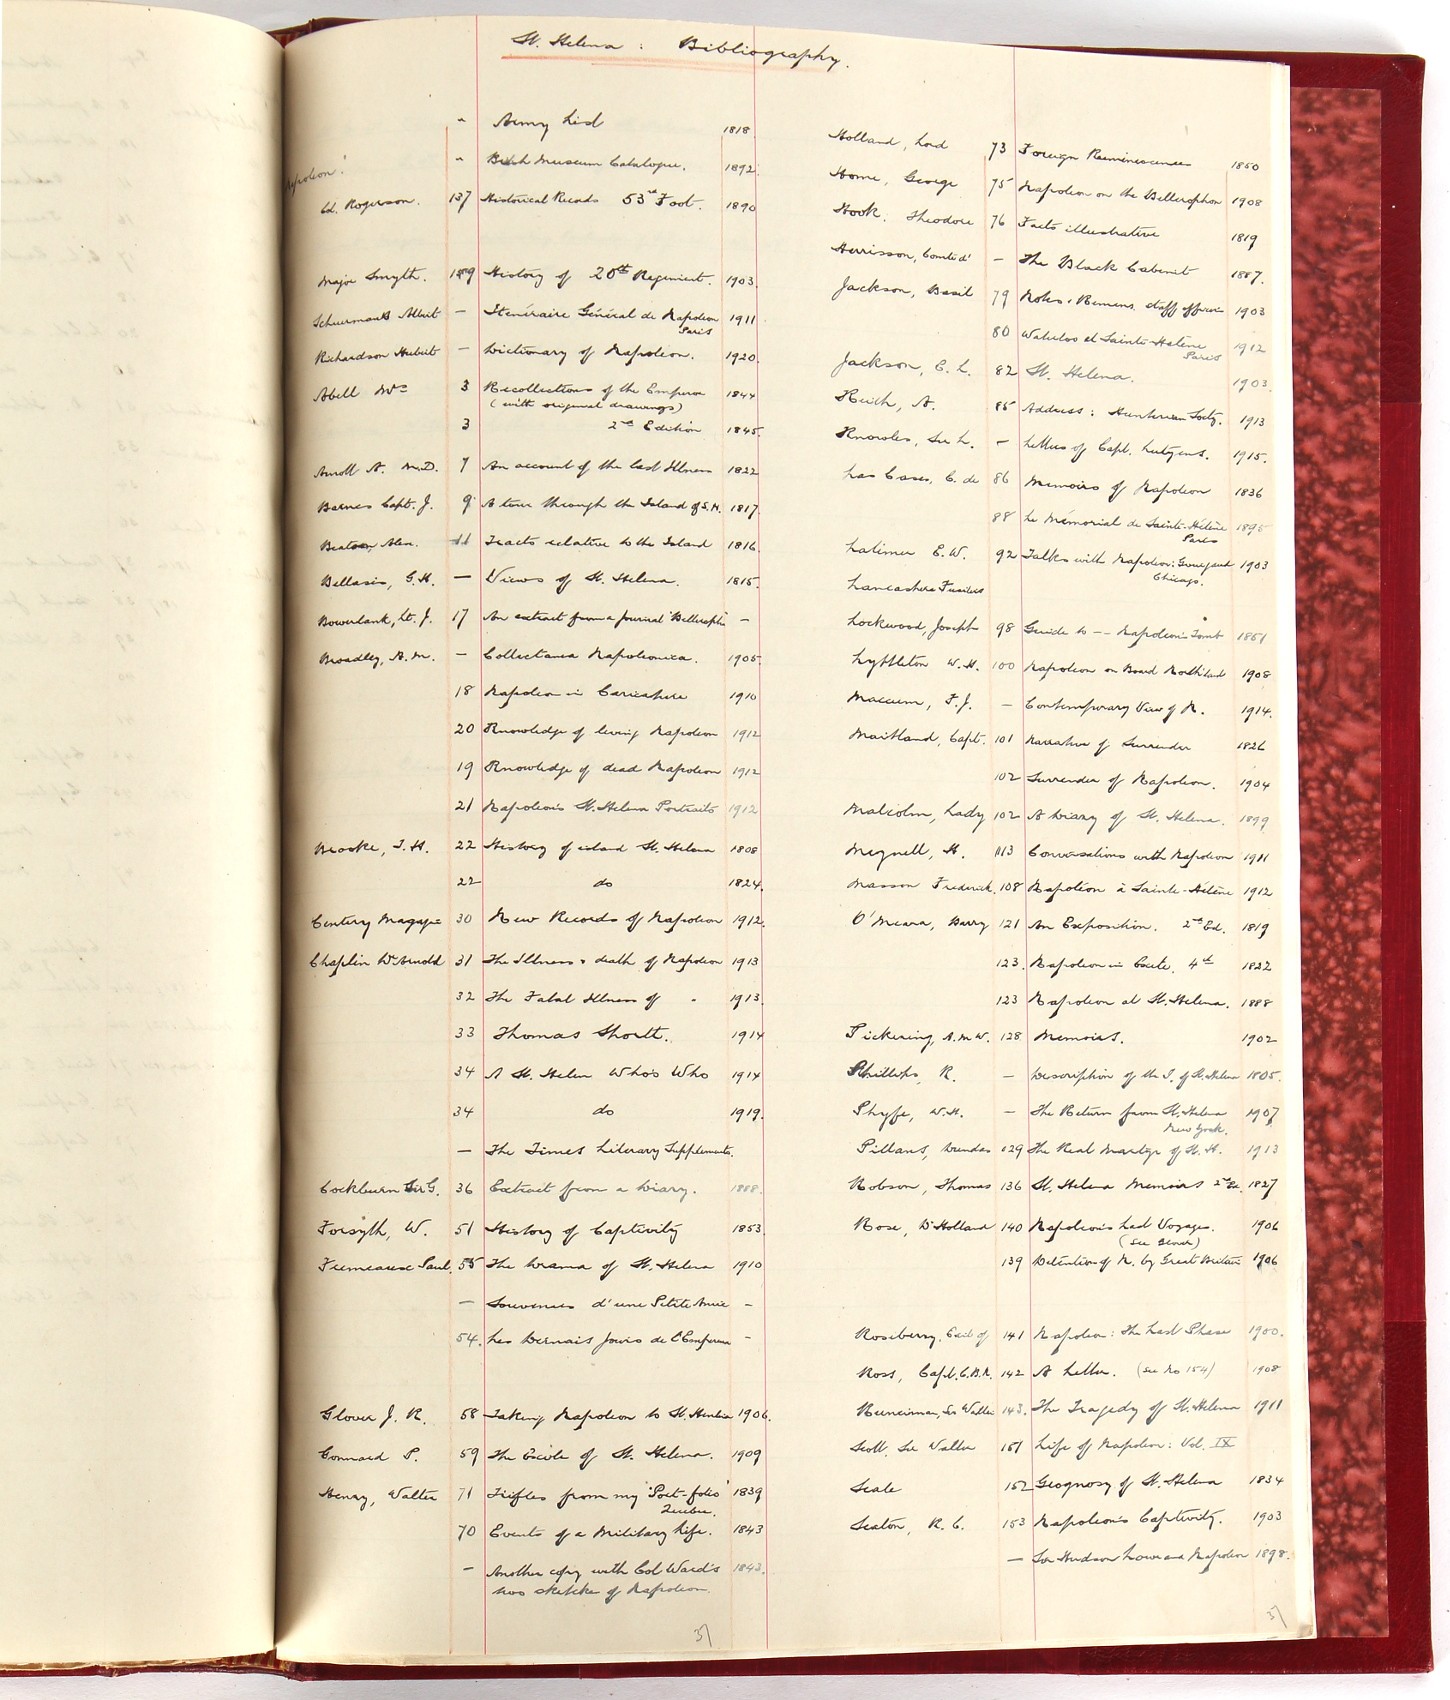 St. Helena : Bibliography.
" Army List 1818
" British Museum Catalogue. 1892.
Napoleon!
Ed. Rogerson. 137 Historical Records 53rd Foot. 1890
Major Smyth. 189 History of 20th Regiment. 1903.
Schuermans Albert — Itinéraire Général de Napoleon 1911
Paris
Richardson Hubert — Dictionary of Napoleon. 1920.
Abell Mrs 3 Recollections of the Emperor 1844
(with original drawings)
3 2nd Edition 1845.
Arnott A. M.D. 7 An account of the last Illness 1822
Barnes Capt. J. 9 A tour through the Island of S.H. 1817.
Beatson, Alex. 11 Tracts relative to the Island 1816.
Bellasis, G.H. — Views of St. Helena. 1815.
Bowerbank, Lt. J. 17 An extract from a Journal 'Bellerophon' —
Broadley, A.M. — Collectanea Napoleonica. 1905.
18 Napoleon in Caricature 1910
20 Knowledge of living Napoleon 1912
19 Knowledge of dead Napoleon 1912
21 Napoleon's St. Helena Portraits 1912
Brooke, T.H. 22 History of island St. Helena 1808
22 do 1824.
Century Magazine 30 New Records of Napoleon 1912.
Chaplin Dr Arnold 31 The Illness & death of Napoleon 1913
32 The Fatal Illness of " 1913.
33 Thomas Shortt. 1914
34 A St. Helena Who's Who 1914
34 do 1919.
— The Times Literary Supplements.
Cockburn Sir G. 36 Extract from a Diary. 1888.
Forsyth, W. 51 History of Captivity 1853.
Fremeaux Paul. 55 The Drama of St. Helena 1910
— Souvenirs d'une Petite Amie —
54. Les Derniers Jours de l'Empereur —
Glover J. R. 58 Taking Napoleon to St. Helena 1906.
Gonnard P. 59 The Exile of St. Helena. 1909
Henry, Walter 71 Trifles from my 'Port-folio' 1839
Quebec.
70 Events of a Military Life. 1843
— Another copy with Col Ward's 1843.
two sketches of Napoleon.
37
Holland, Lord 73 Foreign Reminiscences 1850
Home, George 75 Napoleon on the Bellerophon 1908
Hook, Theodore 76 Facts illustrative 1819
Herrisson, Comte d' — The Black Cabinet 1887.
Jackson, Basil 79 Notes & Reminis. staff officer 1903
80 Waterloo et Sainte-Hélène 1912
Paris
Jackson, E. L. 82 St. Helena. 1903.
Keith, A. 85 Address: Hunterian Socty. 1913
Knowles, Sir L. — Letters of Capt. Lutyens. 1915.
Las Cases, C. de 86 Memoirs of Napoleon 1836
88 Le Mémorial de Sainte-Hélène 1895
Paris
Latimer E.W. 92 Talks with Napoleon: Gourgaud 1903
Chicago.
Lancashire Fusiliers
Lockwood, Joseph 98 Guide to -- Napoleon's Tomb 1851
Lyttleton W.H. 100 Napoleon on Board Northumberland 1908
Maceum, F.J. — Contemporary View of N. 1914.
Maitland, Capt. 101 Narrative of Surrender 1826
102 Surrender of Napoleon. 1904
Malcolm, Lady 102 A Diary of St. Helena. 1899
Meynell, H. 113 Conversations with Napoleon 1911
Masson Frederick. 108 Napoléon à Sainte-Hélène 1912
O'Meara, Barry 121 An Exposition. 2nd Ed. 1819
123. Napoleon in Exile. 4th 1822
123 Napoleon at St. Helena. 1888
Pickering, A.M.W. 128 Memoirs. 1902
Phillips, R. — Description of the I. of St. Helena 1805.
Phyfe, W.H. — The Return from St. Helena 1907
New York.
Pillans, Dundas 129 The Real Martyr of St. H. 1913
Robson, Thomas 136 St. Helena Memoirs 2nd Ed. 1827
Rose, Dr Holland 140 Napoleon's Last Voyages. 1906
(see Glover)
139 Detention of N. by Great Britain 1906
Rosebery, Earl of 141 Napoleon: The Last Phase 1900.
Ross, Capt. C.B.H. 142 A Letter. (see No 154) 1908
Runciman, Sir Walter 143. The Tragedy of St. Helena 1911
Scott, Sir Walter 151 Life of Napoleon: Vol. IX
Seale 152 Geognosy of St. Helena 1834
Seaton, R. C. 153 Napoleon's Captivity. 1903
— Sir Hudson Lowe and Napoleon 1898.
37